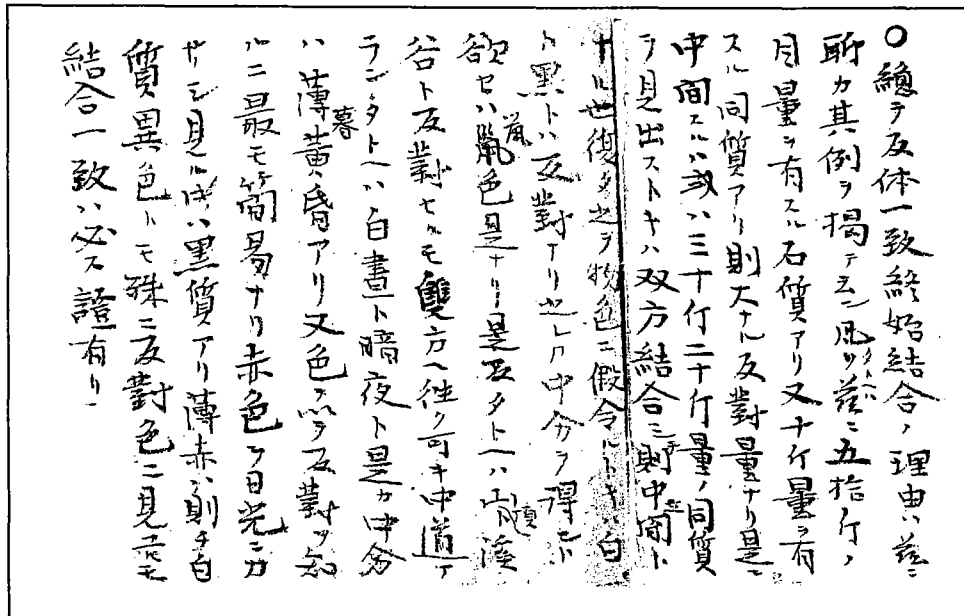 ○總テ反体一致終始結合ノ理由ハ茲ニ
聊カ其例ヲ揭テ云ン凡ソ茲ニ五拾行ノ
目量ヲ有スル石質アリ又十行量ヲ有
スル同質アリ則大ナル反對量ナリ是ニ
中間スルハ或ハ三十行二十行量ノ同質
ヲ見出ストキハ双方結合ニ則中間ト
ナル也復タ之ヲ物色ニ假令ルトキハ白
ト黑トハ反對ナリ之レカ中分ヲ得ント
欲セハ鼠色是ナリ是又タトヘハ山頂溪
谷ト反對セルモ雙方ヘ往ク可キ中道ア
ランタトヘハ白晝ト暗夜ト是カ中分
ハ薄暮黃昏アリ又色ヲ以テ反對ヲ知
ルニ最モ簡易ナリ赤色ヲ日光ニカ
ザシ見ル時ハ黑質アリ薄赤ハ則チ白
質異色トモ殊ニ反對色ニ見ユルモ
結合一致ハ必ス證有リ